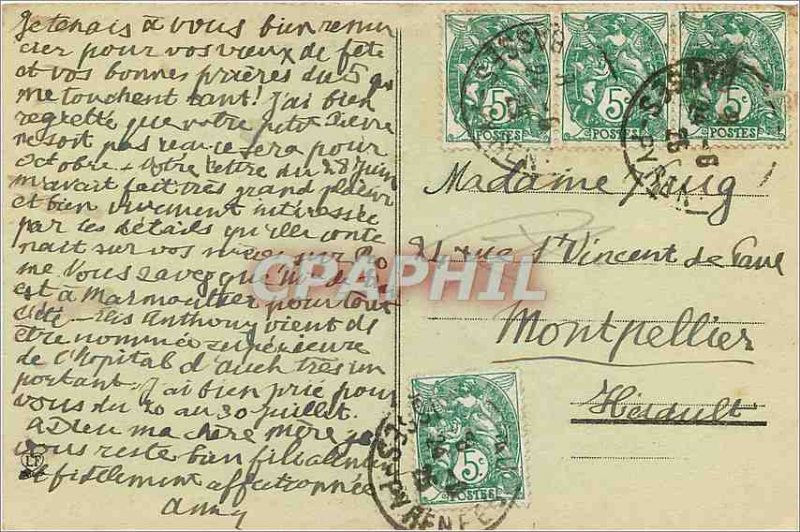 Je tenais à vous bien remer
cier pour vos vœux de fête
et vos bonnes prières du 5 qui
me touchent tant! J'ai bien
regretté que votre petit Pierre
ne soit pas reçu ce sera pour
Octobre. Votre lettre du 28 Juin
m'avait fait très grand plaisir
et bien vivement intéressée
par les détails qu'elle conte
nait sur vos
me Vous savez que
est à Marmoutier pour tout
l'été Anthony vient de
être nommée supérieure
de l'hôpital d'auch très im
portant. J'ai bien prié pour
vous du 20 au 30 juillet.
Adieu ma chère mère je
vous reste bien filialement
et fidèlement affectionnée
Madame
21 rue St Vincent de Paul
Montpellier
Hérault
5c
POSTES
5c
POSTES
5c
POSTES
5c
POSTES
BASSES PYRENEES
CPAPHIL